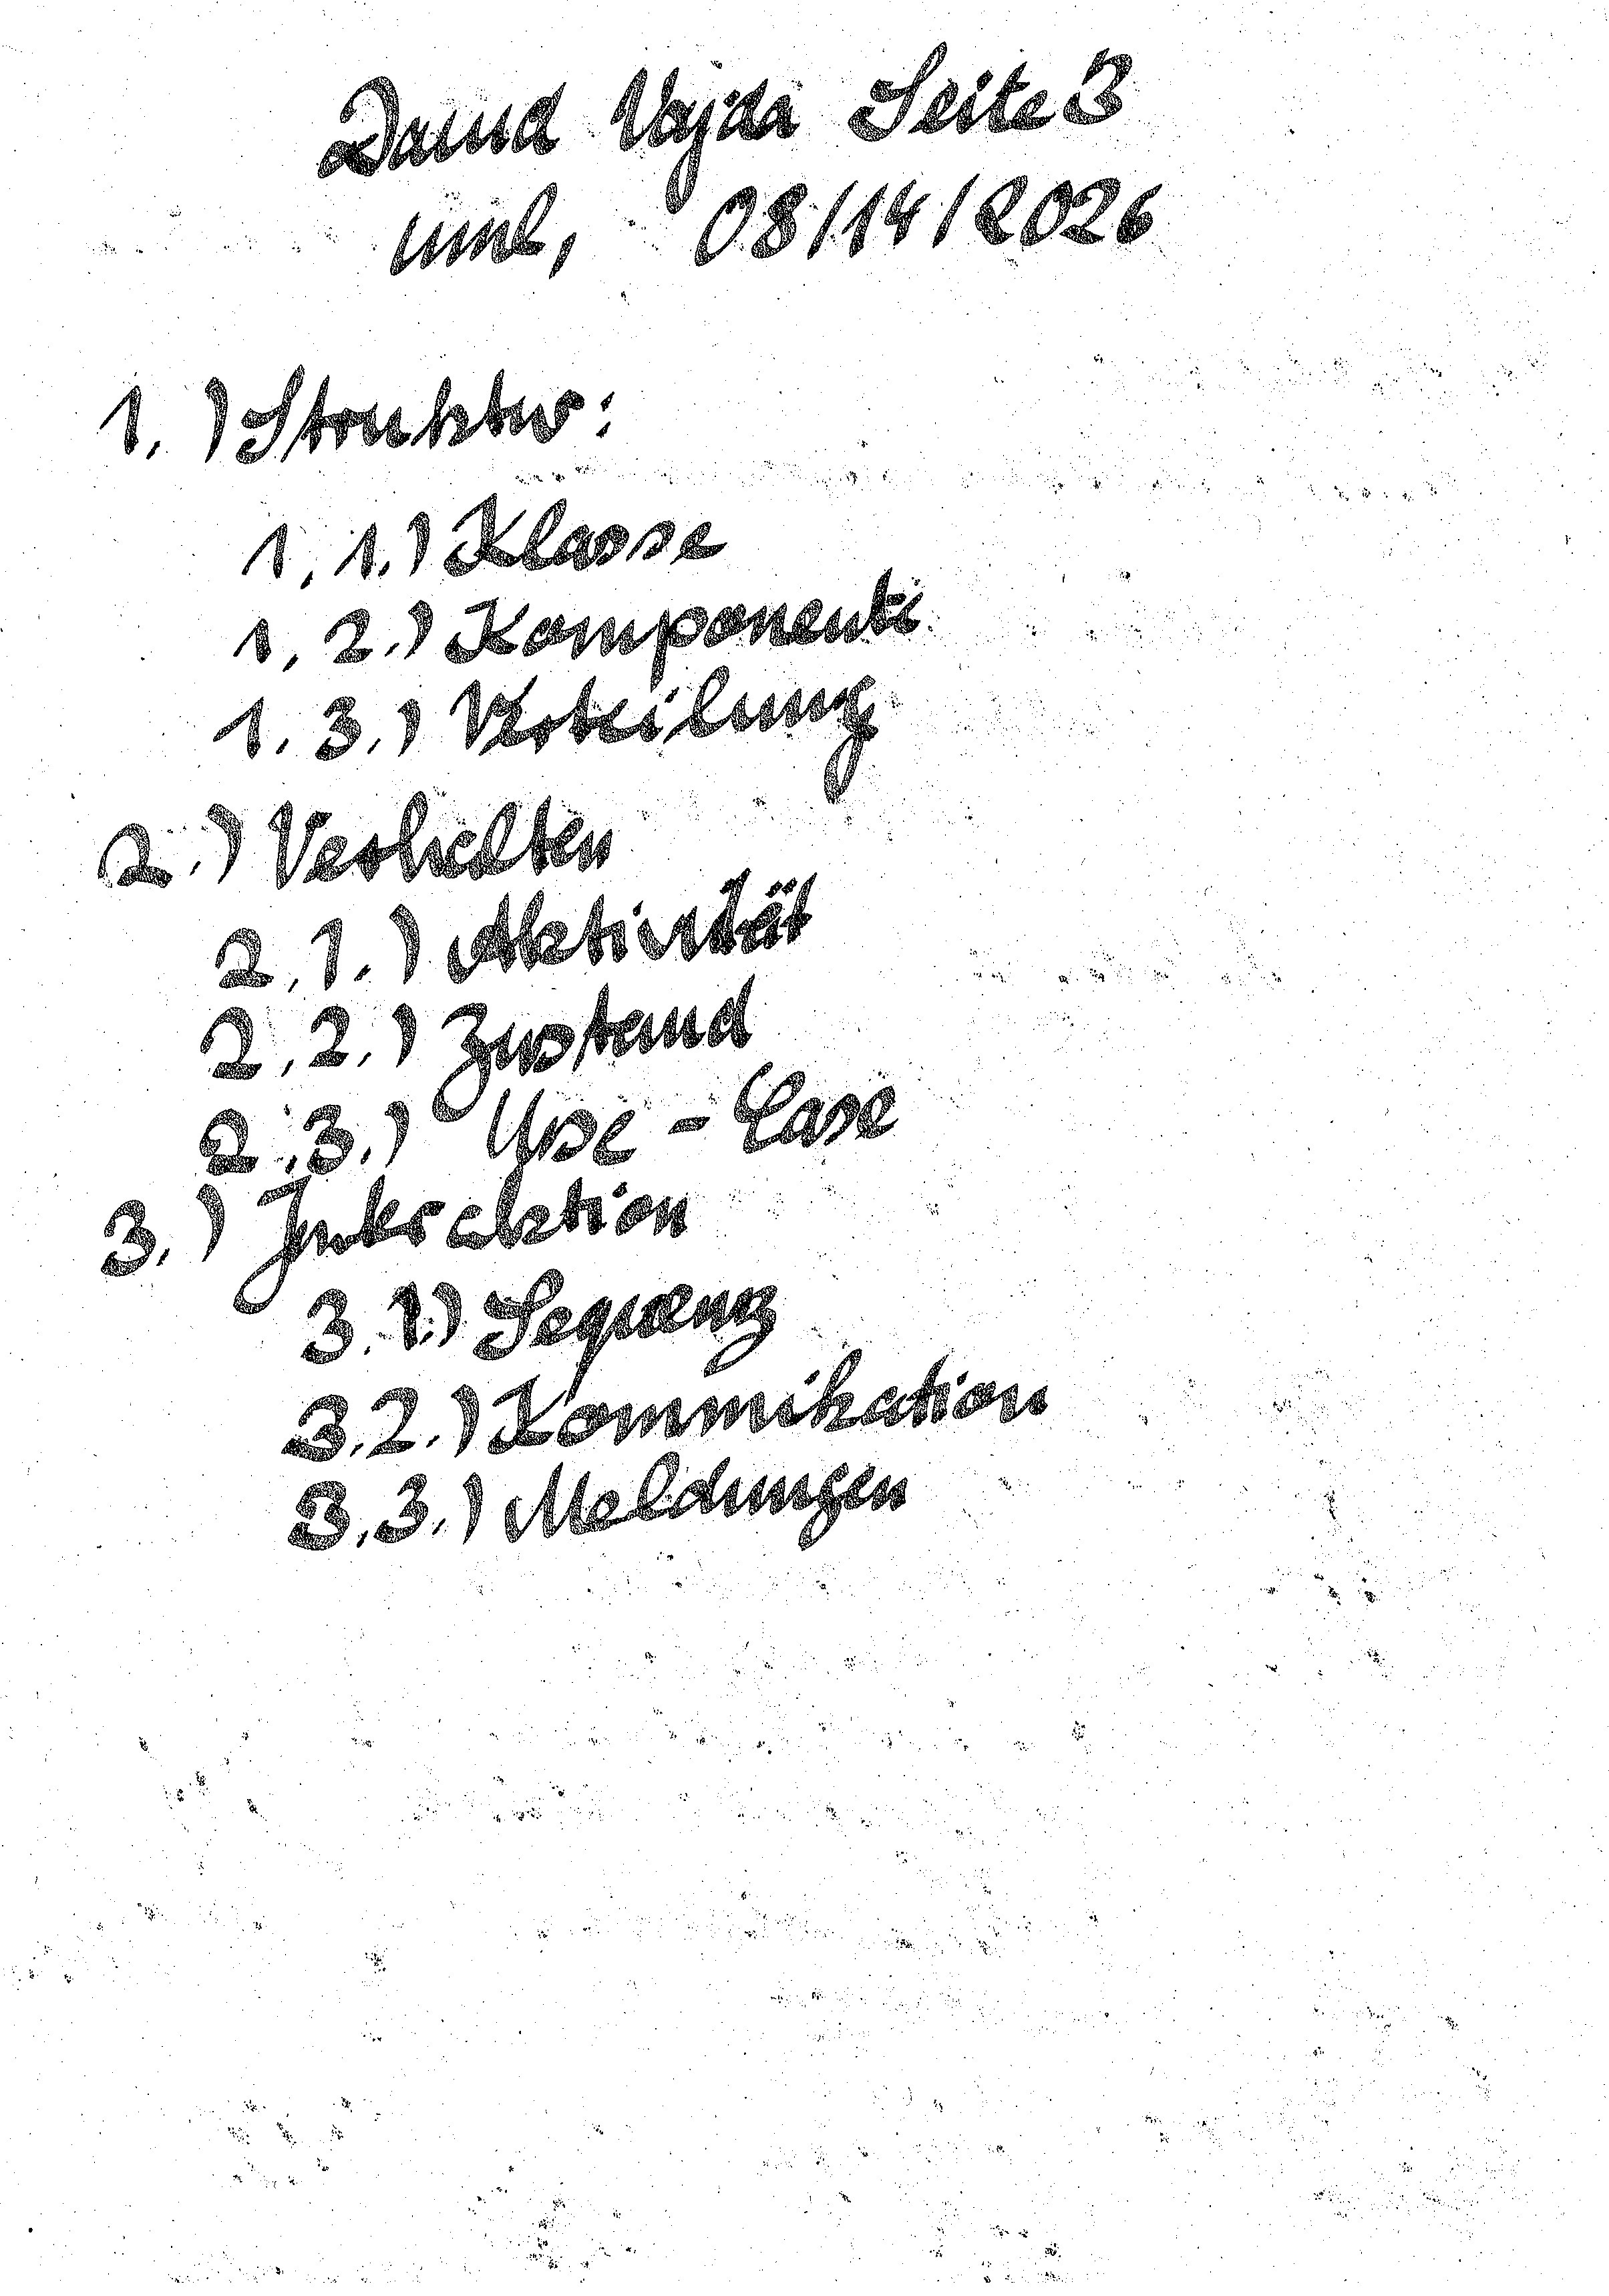 David Vajda Seite 3
uml, 08/14/2026
1.) Struktur:
1.1.) Klasse
1.2.) Komponente
1.3.) Verteilung
2.) Verhalten
2.1.) Aktivität
2.2.) Zustand
2.3.) Use-Case
3.) Interaktion
3.1.) Sequenz
3.2.) Kommikation
3.3.) Meldungen